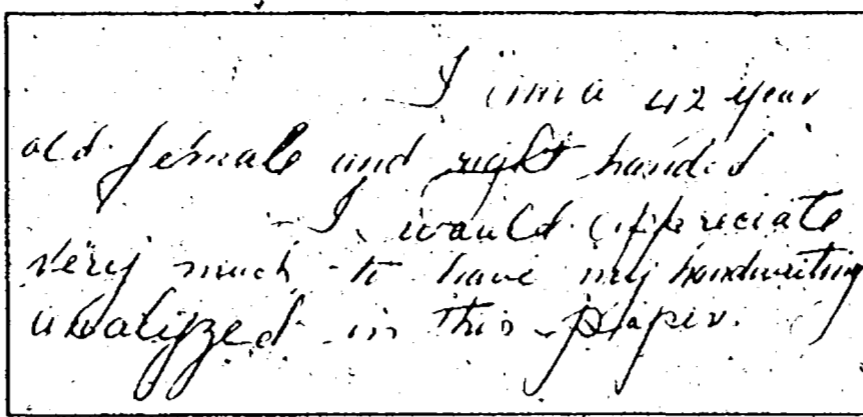 I am a 42 year
old female and right handed
I would appreciate
very much to have my handwriting
analyzed in this paper.